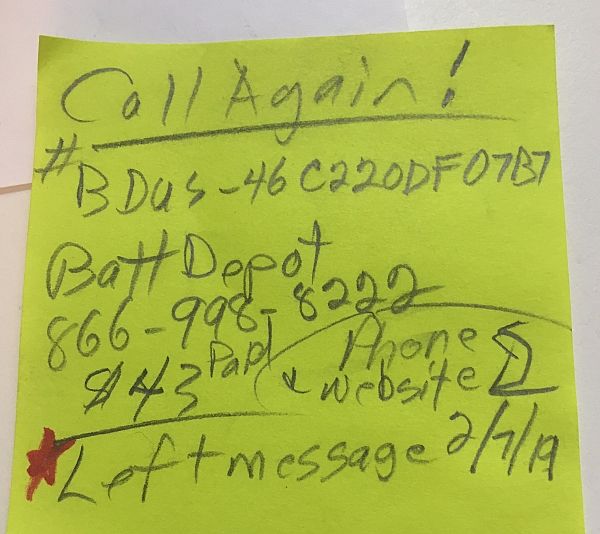 Call Again!
# BDus-46C220DF07B7
BattDepot
866-998-8222
$43 Paid
Phone
& website
Left message 2/7/19